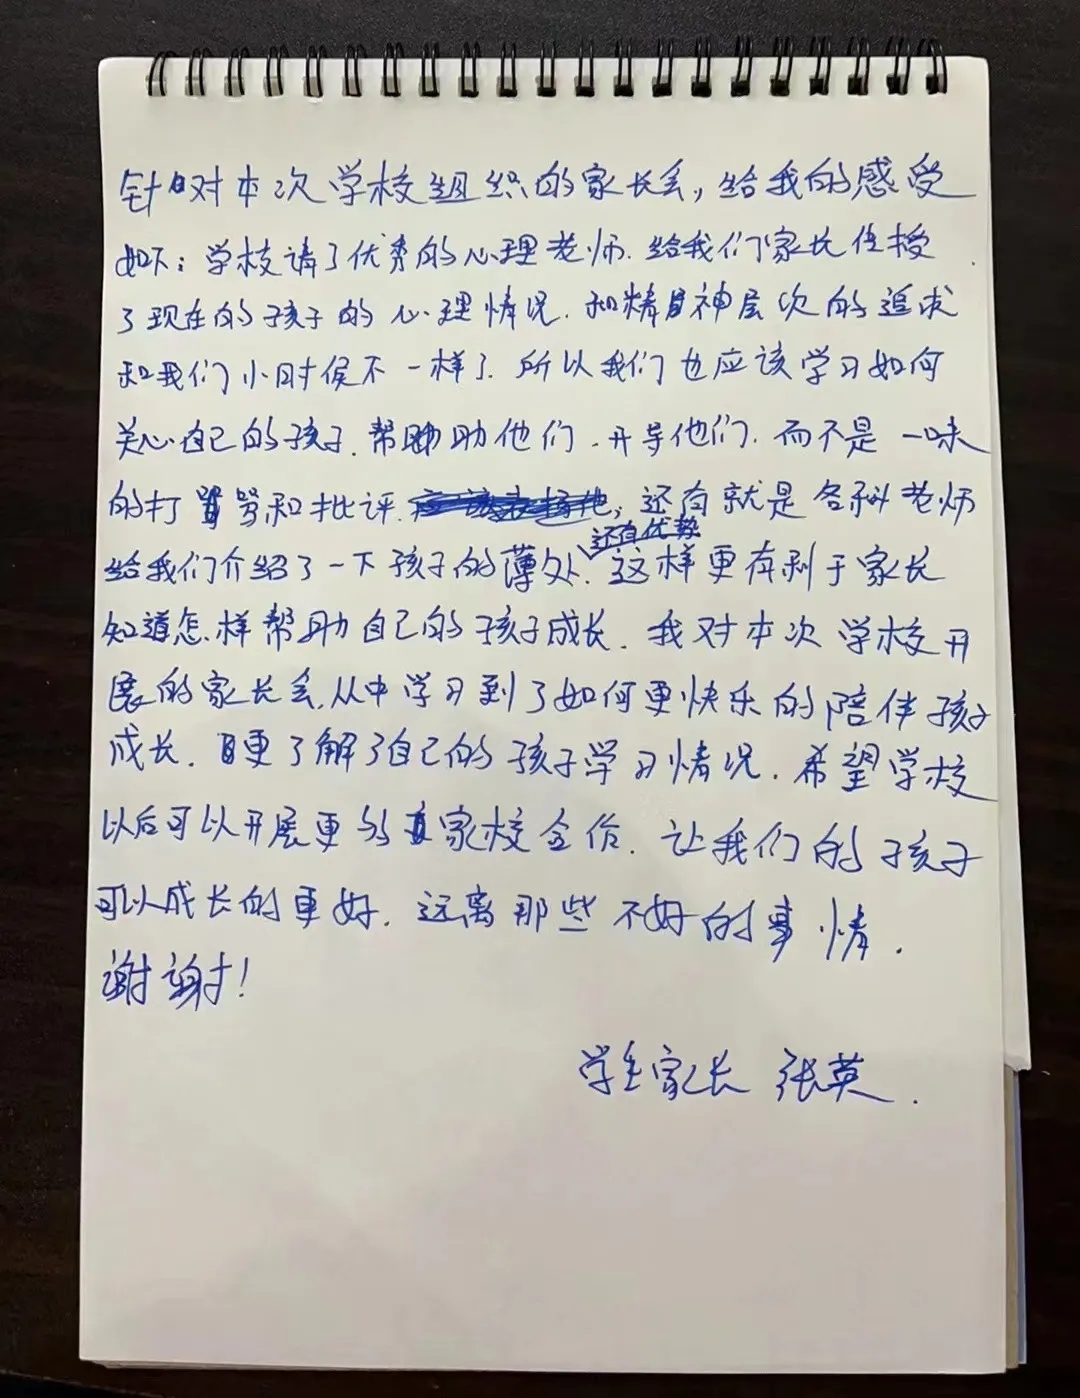 针对本次学校组织的家长会，给我的感受
如下：学校请了优秀的心理老师.给我们家长传授
了现在的孩子的心理情况.和精神层次的追求
和我们小时候不一样了.所以我们也应该学习如何
关心自己的孩子.帮助他们.开导他们.而不是一味
的打骂和批评.还有就是各科老师
还有优势
给我们介绍了一下孩子的薄处.这样更有利于家长
知道怎样帮助自己的孩子成长.我对本次学校开
展的家长会.从中学习到了如何更快乐的陪伴孩子
成长.更了解了自己的孩子学习情况.希望学校
以后可以开展更多家校合作.让我们的孩子
可以成长的更好.远离那些不好的事情.
谢谢！
学生家长 张英.